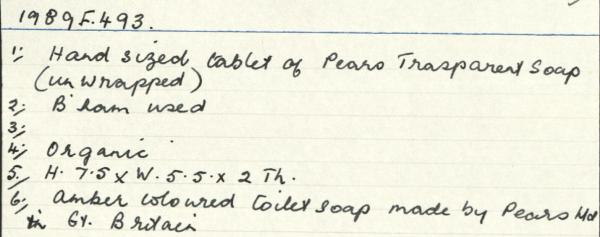 1989 F. 493.
1; Hand sized tablet of Pears Trasparent Soap
(un wrapped)
2; B'ham used
3;
4; Organic
5; H. 7.5 x W. 5.5. x 2 Th.
6; Amber coloured toilet soap made by Pears Ltd
in Gt. Britain